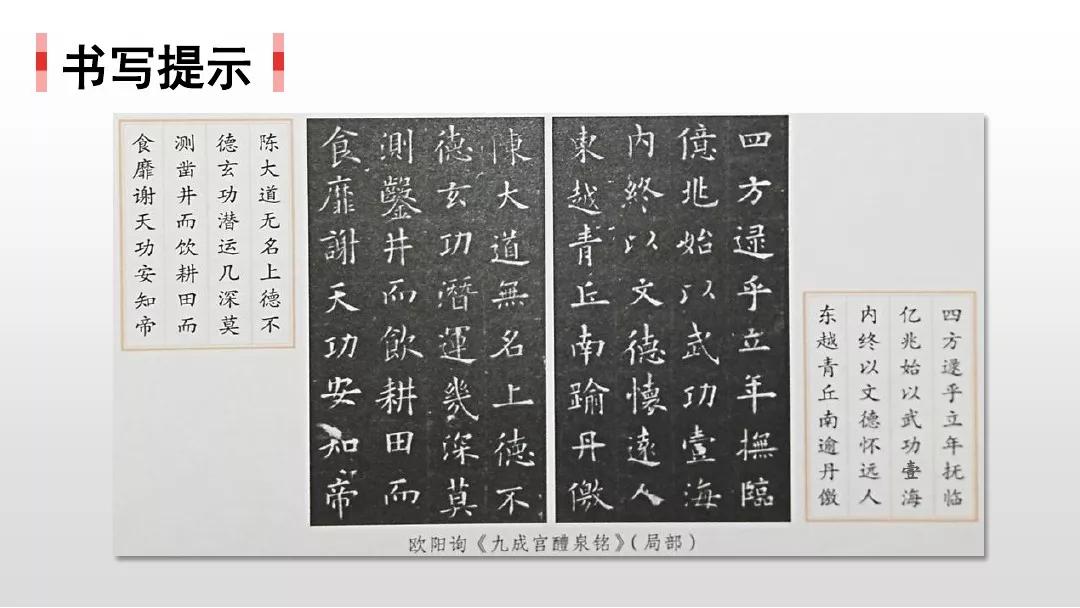 书写提示
四方逯乎立年抚临
亿兆始以武功壹海
内终以文德怀远人
东越青丘南逾丹儌
四方逯乎立年撫臨
億兆始以武功壹海
内終以文德懷遠人
東越青丘南踰丹儌
陳大道無名上德不
德玄功潛運幾深莫
測鑿井而飲耕田而
食靡謝天功安知帝
陈大道无名上德不
德玄功潜运几深莫
测凿井而饮耕田而
食靡谢天功安知帝
欧阳询《九成宫醴泉铭》（局部）